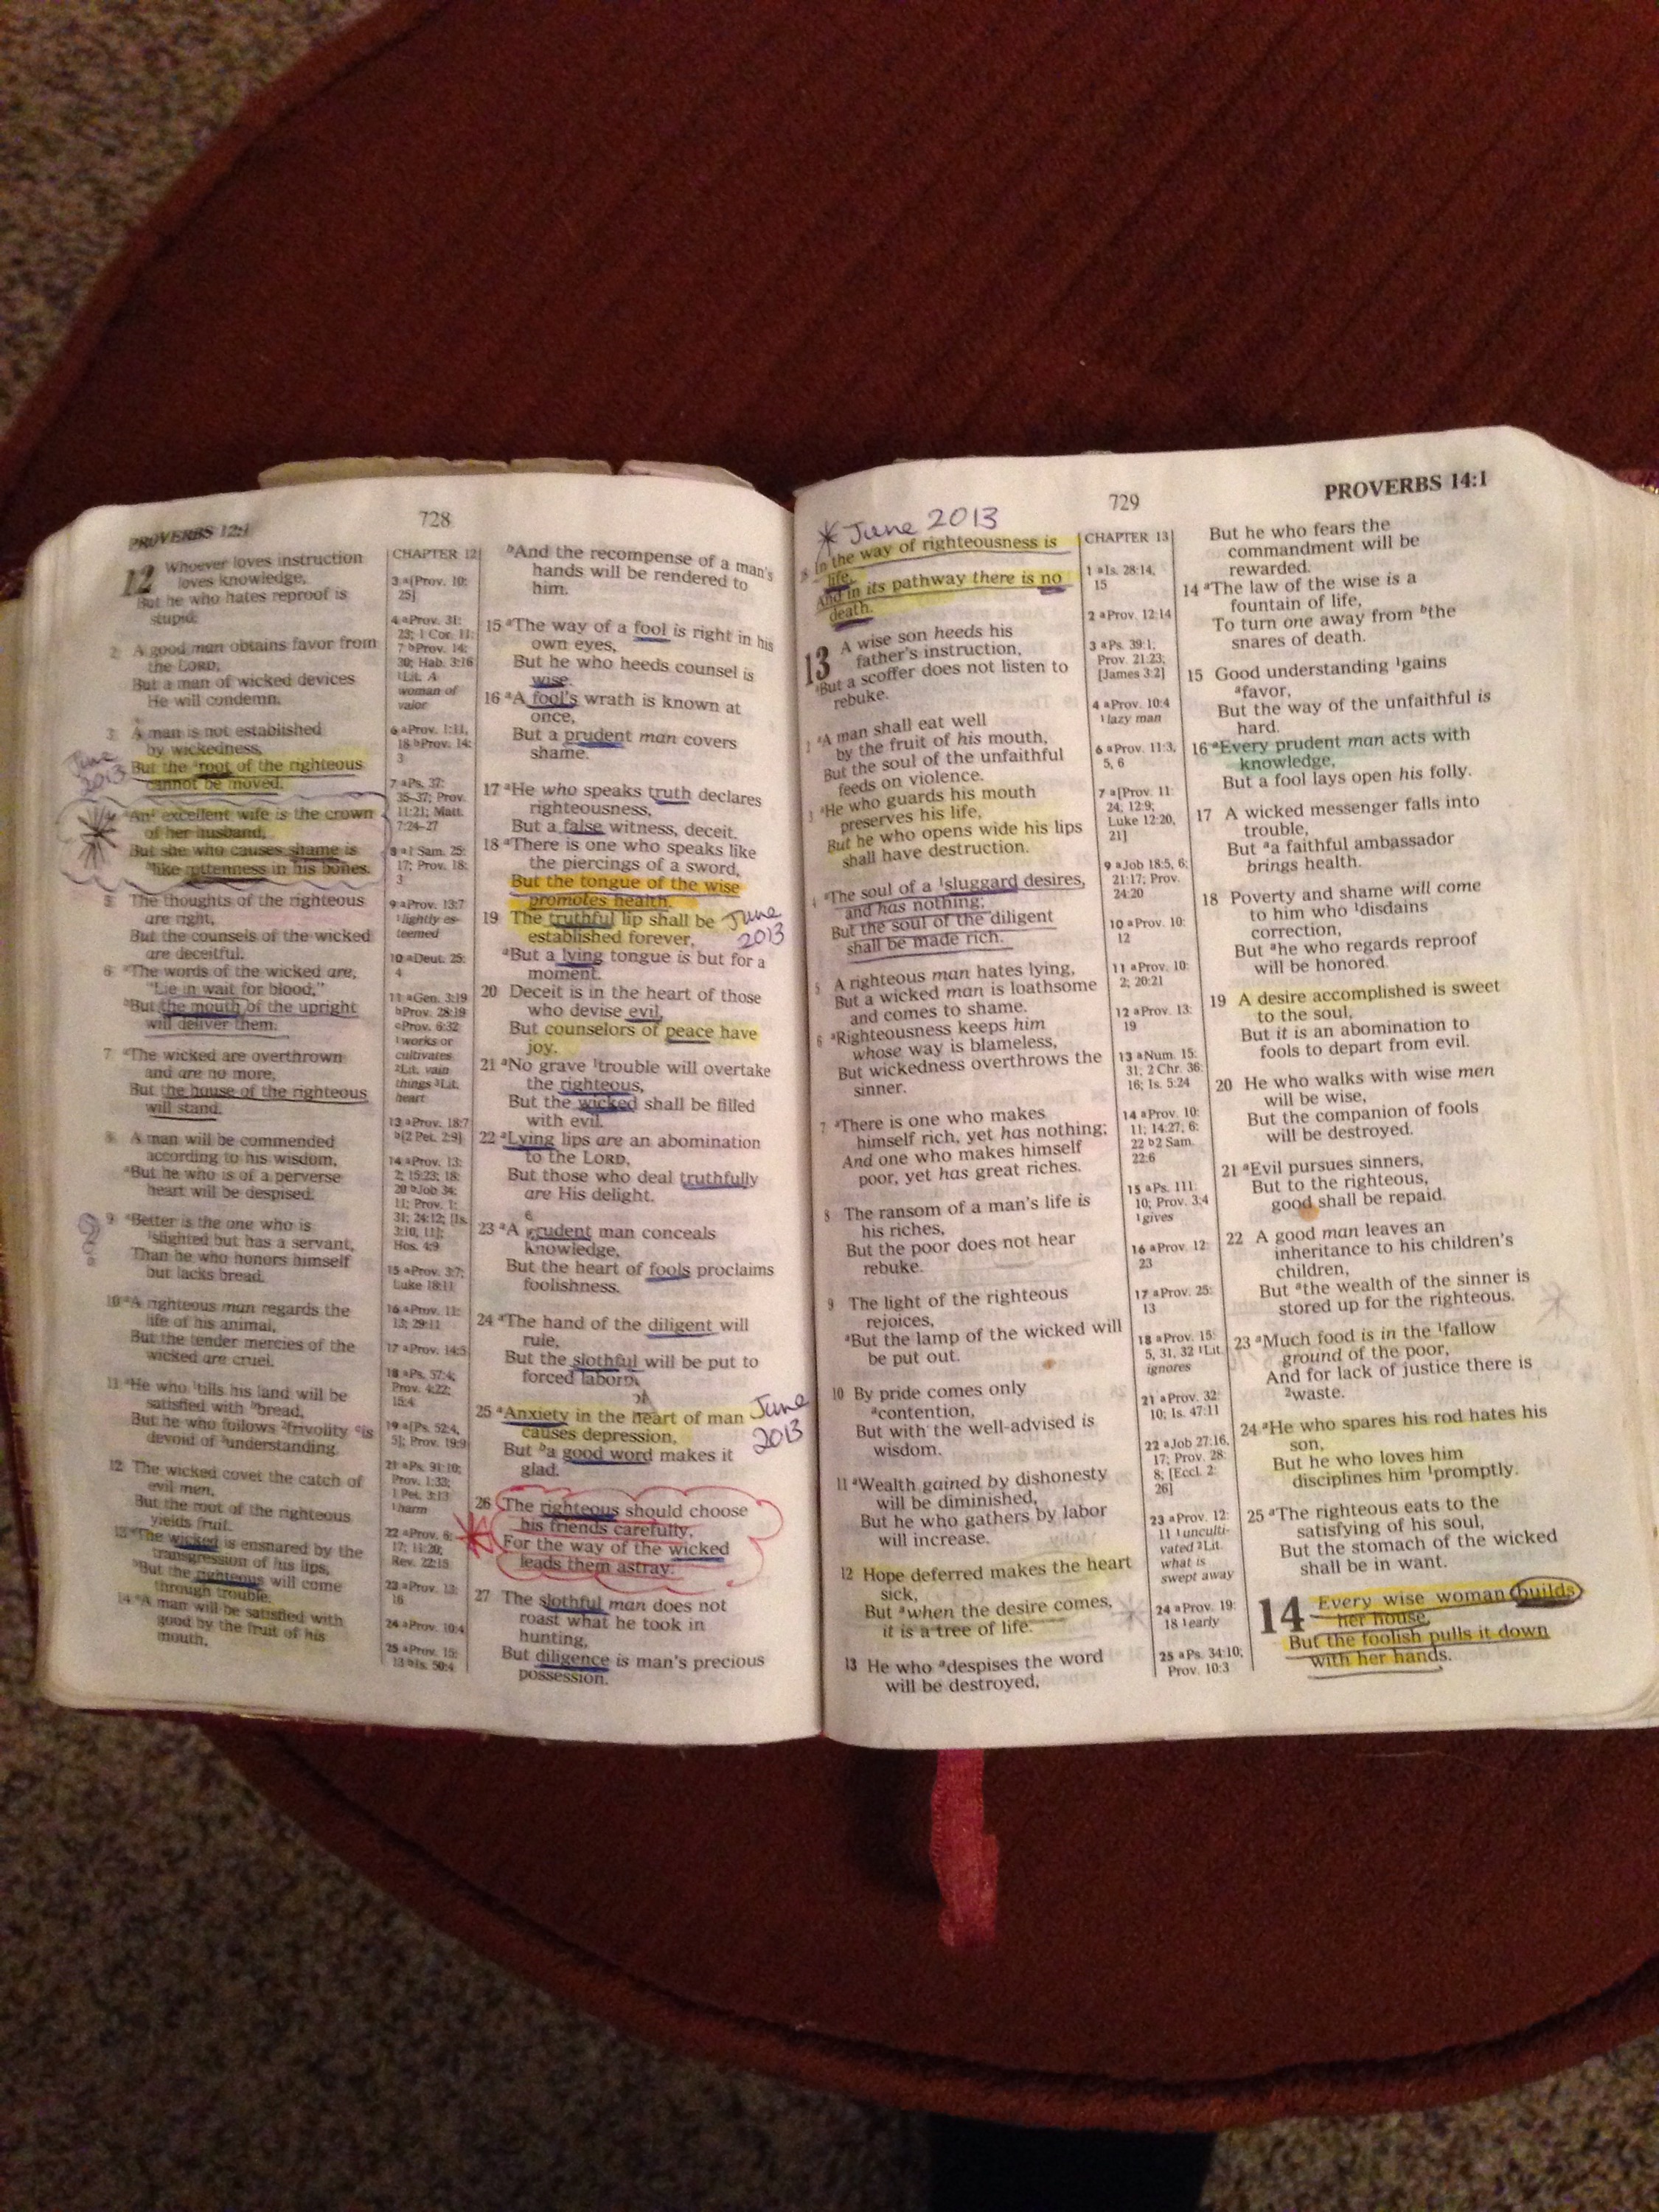 PROVERBS 12:1
728
12 Whoever loves instruction
loves knowledge,
But he who hates reproof is
stupid.
2 A good man obtains favor from
the LORD,
But a man of wicked devices
He will condemn.
3 A man is not established
by wickedness,
But the ªroot of the righteous
cannot be moved.
June
2013
4 ªAn¹ excellent wife is the crown
of her husband,
But she who causes shame is
ᵇlike rottenness in his bones.
5 The thoughts of the righteous
are right,
But the counsels of the wicked
are deceitful.
6 ªThe words of the wicked are,
"Lie in wait for blood,"
ᵇBut the mouth of the upright
will deliver them.
7 ªThe wicked are overthrown
and are no more,
But the house of the righteous
will stand.
8 A man will be commended
according to his wisdom,
ªBut he who is of a perverse
heart will be despised.
?
9 ªBetter is the one who is
¹slighted but has a servant,
Than he who honors himself
but lacks bread.
10 ªA righteous man regards the
life of his animal,
But the tender mercies of the
wicked are cruel.
11 ªHe who ¹tills his land will be
satisfied with ᵇbread,
But he who follows ²frivolity ᶜis
devoid of ³understanding.
12 The wicked covet the catch of
evil men,
But the root of the righteous
yields fruit.
13 ªThe wicked is ensnared by the
transgression of his lips,
ᵇBut the righteous will come
through trouble.
14 ªA man will be satisfied with
good by the fruit of his
mouth,
CHAPTER 12
3 a[Prov. 10:
25]
4 a Prov. 31:
23; 1 Cor. 11:
7 b Prov. 14:
30; Hab. 3:16
1 Lit. A
woman of
valor
6 a Prov. 1:11,
18 b Prov. 14:
3
7 a Ps. 37:
35–37; Prov.
11:21; Matt.
7:24–27
8 a 1 Sam. 25:
17; Prov. 18:
3
9 a Prov. 13:7
1 lightly es-
teemed
10 a Deut. 25:
4
11 a Gen. 3:19
b Prov. 28:19
c Prov. 6:32
1 works or
cultivates
2 Lit. vain
things 3 Lit.
heart
13 a Prov. 18:7
b [2 Pet. 2:9]
14 a Prov. 13:
2; 15:23; 18:
20 b Job 34:
11; Prov. 1:
31; 24:12; [Is.
3:10, 11];
Hos. 4:9
15 a Prov. 3:7;
Luke 18:11
16 a Prov. 11:
13; 29:11
17 a Prov. 14:5
18 a Ps. 57:4;
Prov. 4:22;
15:4
19 a [Ps. 52:4,
5]; Prov. 19:9
21 a Ps. 91:10;
Prov. 1:33;
1 Pet. 3:13
1 harm
22 a Prov. 6:
17; 11:20;
Rev. 22:15
23 a Prov. 13:
16
24 a Prov. 10:4
25 a Prov. 15:
13 b Is. 50:4
ᵇAnd the recompense of a man's
hands will be rendered to
him.
15 ªThe way of a fool is right in his
own eyes,
But he who heeds counsel is
wise.
16 ªA fool's wrath is known at
once,
But a prudent man covers
shame.
17 ªHe who speaks truth declares
righteousness,
But a false witness, deceit.
18 ªThere is one who speaks like
the piercings of a sword,
But the tongue of the wise
promotes health.
19 The truthful lip shall be
established forever,
June
2013
ªBut a lying tongue is but for a
moment.
20 Deceit is in the heart of those
who devise evil,
But counselors of peace have
joy.
21 ªNo grave ¹trouble will overtake
the righteous,
But the wicked shall be filled
with evil.
22 ªLying lips are an abomination
to the LORD,
But those who deal truthfully
are His delight.
23 ªA prudent man conceals
knowledge,
But the heart of fools proclaims
foolishness.
24 ªThe hand of the diligent will
rule,
But the slothful will be put to
forced labor.
25 ªAnxiety in the heart of man
causes depression,
But ᵇa good word makes it
glad.
June
2013
26 The righteous should choose
his friends carefully,
For the way of the wicked
leads them astray.
27 The slothful man does not
roast what he took in
hunting,
But diligence is man's precious
possession.
729
PROVERBS 14:1
* June 2013
28 In the way of righteousness is
life,
And in its pathway there is no
death.
13 A wise son heeds his
father's instruction,
ªBut a scoffer does not listen to
rebuke.
2 ªA man shall eat well
by the fruit of his mouth,
But the soul of the unfaithful
feeds on violence.
3 ªHe who guards his mouth
preserves his life,
But he who opens wide his lips
shall have destruction.
4 ªThe soul of a ¹sluggard desires,
and has nothing;
But the soul of the diligent
shall be made rich.
5 A righteous man hates lying,
But a wicked man is loathsome
and comes to shame.
6 ªRighteousness keeps him
whose way is blameless,
But wickedness overthrows the
sinner.
7 ªThere is one who makes
himself rich, yet has nothing;
And one who makes himself
poor, yet has great riches.
8 The ransom of a man's life is
his riches,
But the poor does not hear
rebuke.
9 The light of the righteous
rejoices,
ªBut the lamp of the wicked will
be put out.
10 By pride comes only
ªcontention,
But with the well-advised is
wisdom.
11 ªWealth gained by dishonesty
will be diminished,
But he who gathers by labor
will increase.
12 Hope deferred makes the heart
sick,
But ªwhen the desire comes,
it is a tree of life.
13 He who ªdespises the word
will be destroyed,
CHAPTER 13
1 a Is. 28:14,
15
2 a Prov. 12:14
3 a Ps. 39:1;
Prov. 21:23;
[James 3:2]
4 a Prov. 10:4
1 lazy man
6 a Prov. 11:3,
5, 6
7 a [Prov. 11:
24; 12:9;
Luke 12:20,
21]
9 a Job 18:5, 6;
21:17; Prov.
24:20
10 a Prov. 10:
12
11 a Prov. 10:
2; 20:21
12 a Prov. 13:
19
13 a Num. 15:
31; 2 Chr. 36:
16; Is. 5:24
14 a Prov. 10:
11; 14:27, 6:
22 b 2 Sam.
22:6
15 a Ps. 111:
10; Prov. 3:4
1 gives
16 a Prov. 12:
23
17 a Prov. 25:
13
18 a Prov. 15:
5, 31, 32 1 Lit.
ignores
21 a Prov. 32:
10; Is. 47:11
22 a Job 27:16,
17; Prov. 28:
8; [Eccl. 2:
26]
23 a Prov. 12:
11 1 unculti-
vated 2 Lit.
what is
swept away
24 a Prov. 19:
18 1 early
25 a Ps. 34:10;
Prov. 10:3
But he who fears the
commandment will be
rewarded.
14 ªThe law of the wise is a
fountain of life,
To turn one away from ᵇthe
snares of death.
15 Good understanding ¹gains
ªfavor,
But the way of the unfaithful is
hard.
16 ªEvery prudent man acts with
knowledge,
But a fool lays open his folly.
17 A wicked messenger falls into
trouble,
But ªa faithful ambassador
brings health.
18 Poverty and shame will come
to him who ¹disdains
correction,
But ªhe who regards reproof
will be honored.
19 A desire accomplished is sweet
to the soul,
But it is an abomination to
fools to depart from evil.
20 He who walks with wise men
will be wise,
But the companion of fools
will be destroyed.
21 ªEvil pursues sinners,
But to the righteous,
good shall be repaid.
22 A good man leaves an
inheritance to his children's
children,
But ªthe wealth of the sinner is
stored up for the righteous.
23 ªMuch food is in the ¹fallow
ground of the poor,
And for lack of justice there is
²waste.
24 ªHe who spares his rod hates his
son,
But he who loves him
disciplines him ¹promptly.
25 ªThe righteous eats to the
satisfying of his soul,
But the stomach of the wicked
shall be in want.
14 Every wise woman builds
her house,
But the foolish pulls it down
with her hands.